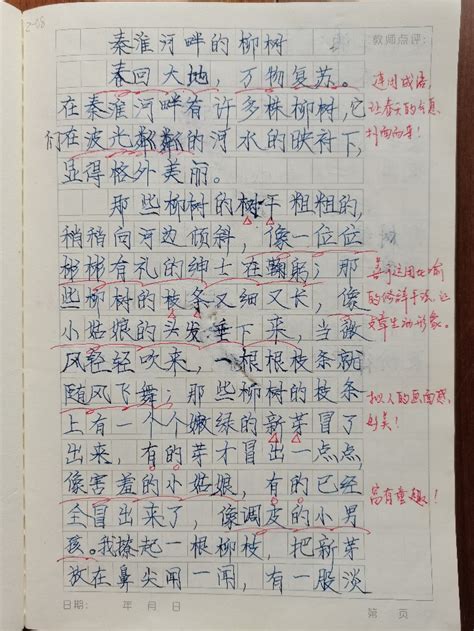 2-08
教师点评：
秦淮河畔的柳树
春回大地，万物复苏。
在秦淮河畔有许多株柳树，它
们在波光粼粼的河水的映衬下，
显得格外美丽。
那些柳树的树干粗粗的，
稍稍向河边倾斜，像一位位
彬彬有礼的绅士在鞠躬；那
些柳树的枝条又细又长，像
小姑娘的头发垂下来，当微
风轻轻吹来，一根根枝条就
随风飞舞；那些柳树的枝条
上有一个个嫩绿的新芽冒了
出来，有的芽才冒出一点点，
像害羞的小姑娘，有的已经
全冒出来了，像调皮的小男
孩。我撩起一根柳枝，把新芽
放在鼻尖闻一闻，有一股淡
连用成语，
让春天的气息
扑面而来！
善于运用比喻
的修辞手法，让
文章生动形象。
拟人的画面感，
好美！
富有童趣！
日期： 年 月 日
第 页